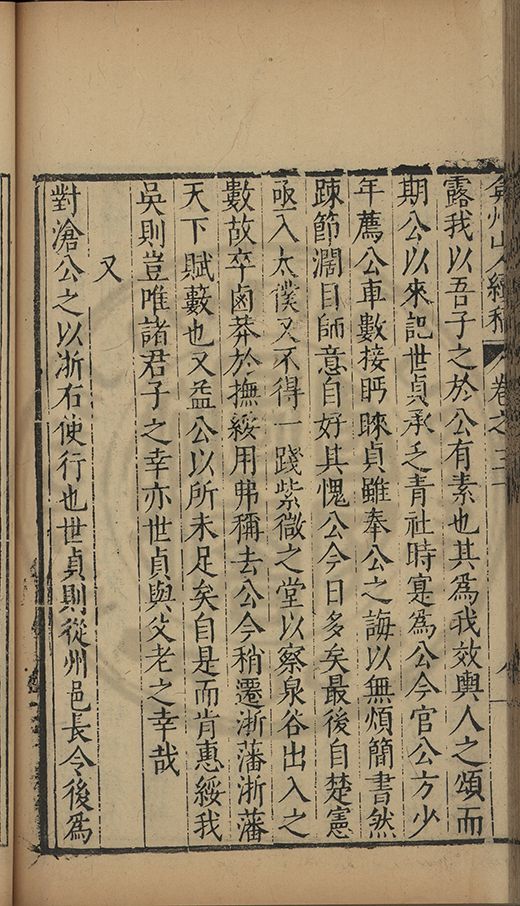 弇州山人續稿 卷之三十
露我以吾子之於公有素也其為我效輿人之頌而
期公以來記世貞承乏青社時寔為公今官公方少
年薦公車數接眄睞貞雖奉公之誨以無煩簡書然
踈節濶目師意自好其愧公今日多矣最後自楚憲
亟入太僕又不得一踐紫微之堂以察泉谷出入之
數故卒鹵莽於撫綏用弗稱去公今稍遷浙藩浙藩
天下賦藪也又益公以所未足矣自是而肯惠綏我
吳則豈唯諸君子之幸亦世貞與父老之幸哉
又
對滄公之以浙右使行也世貞則從州邑長令後為